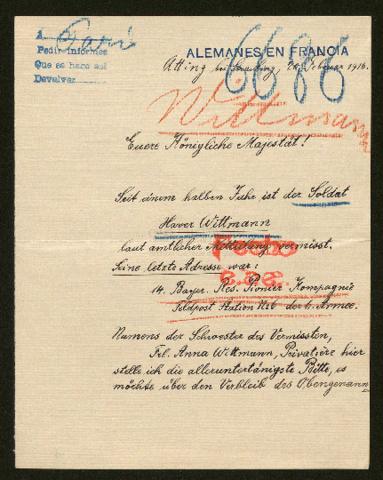 A Paris
Pedir informes
Que se hace así
Devolver
ALEMANES EN FRANCIA
6686
Atting bei Straubing, Februar 1916.
Wittmann
Euere Königliche Majestät!
Seit einem halben Jahr ist der Soldat
Xaver Wittmann
laut amtlicher Mitteilung vermisst.
Seine letzte Adresse war:
14. Bayer. Res. Pionier Kompagnie
Feldpost Station No der 6. Armee.
Namens der Schwester des Vermissten,
Frl. Anna Wittmann, Privatière hier
stelle ich die alleruntertänigste Bitte, es
möchte über den Verbleib des Obengenann